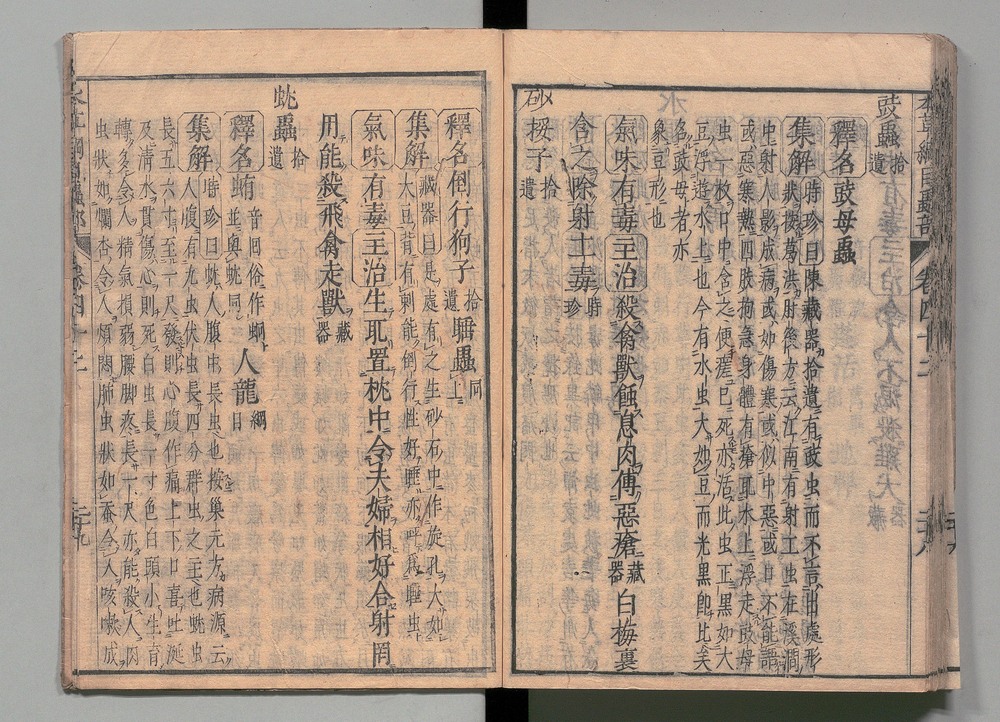 本草綱目蟲部 卷四十二 二十八
豉蟲 拾遺
釋名豉母蟲
集解時珍曰陳藏器拾遺有豉虫而不言出處形
狀按葛洪肘後方云江南有射工虫在溪澗
中射人影成病或如傷寒或似中惡或口不能語
或惡寒熱四肢拘急身體有瘡取水上浮走豉母
虫一枚口中含之便瘥已死亦活此虫正黑如大
豆浮遊水上也今有水虫大如豆而光黑即此矣
名豉母者亦
象豆形也
氣味有毒主治殺禽獸蝕息肉傅惡瘡藏器白梅裹
含之除射工毒時珍
砂挼子 拾遺
釋名倒行狗子拾遺睡蟲同上
集解藏器曰是處有之生砂石中作旋孔大如
大豆背有刺能倒行性好睡亦呼爲睡虫
氣味有毒主治生取置枕中令夫婦相好合射罔
用能殺飛禽走獸藏器
蚘蟲 拾遺
釋名蛕音回俗作蛔並與蚘同人龍綱目
集解時珍曰蚘人腹中長虫也按巢元方病源云
人腹有九虫伏虫長四分群虫之主也蚘虫
長五六寸至一尺發則心腹作痛上下口喜吐涎
及清水貫傷心則死白虫長一寸色白頭小生育
轉多令人精氣損弱腰脚疼長一尺亦能殺人肉
虫狀如爛杏令人煩悶肺虫狀如蚕令人咳嗽成
本草綱目蟲部 卷四十二 二十九